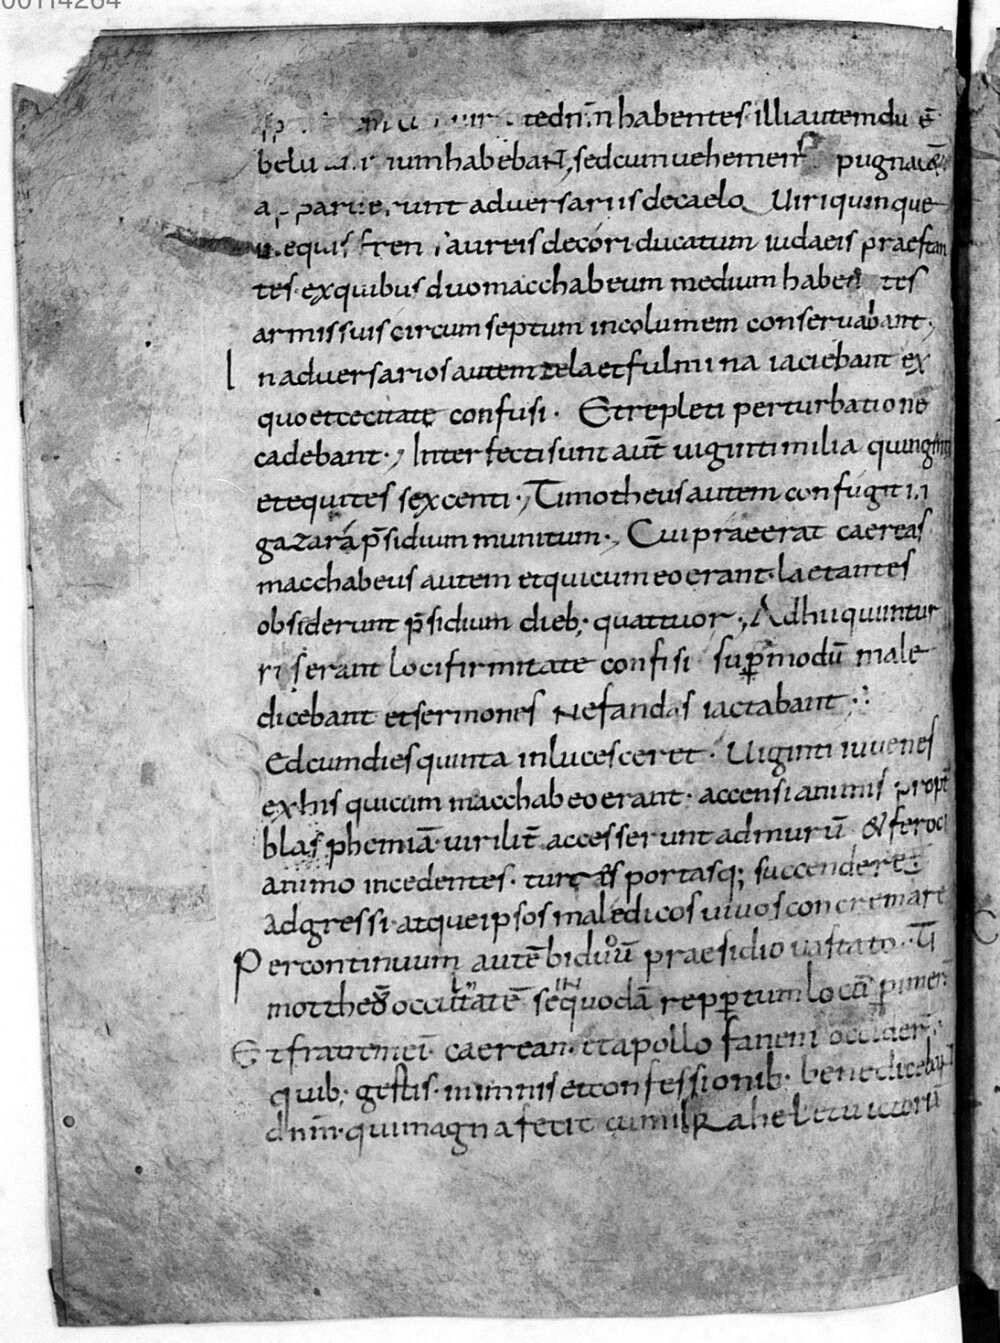 00114264
tedn̄m habentes· illi autem ducē
habeban̄t, sed cum uehemens pugna
apparuerunt adversariis decaelo Uiri quinque
equis frenis aureis decori ducatum iudaeis praestan
tes· exquibus duo macchabeum medium haben tes
armis suis circumseptum incolumem conseruabant·,
In adversarios autem tela et fulmina iaciebant ex
quo et cecitate confusi · Et repleti perturbatione
cadebant·, Interfecti sunt aut̄ uiginti milia quingenti
et equites sexcenti·, Timotheus autem confugit in
gazara p̄sidium munitum·, Cui praeerat caereas
macchabeus autem et qui cum eo erant· laetantes
obsiderunt p̄sidium dieb; quattuor·, Ad hii qui intur
ri s erant loci firmitate confisi sup̄ modū male
dicebant et sermones nefandas iactabant·:
Ed cum dies quinta inlucesceret· Uiginti iuuenes
ex his qui cum macchabeo erant· accensi animis propt̄
blasphemiā· uirilit̄ accesserunt ad murū & feroci
animo incedentes· turres portasq; succendere
adgressi· atque ipsos maledicos uiuos concremare
Per continuum autē biduū praesidio uastato· Ti
motheū occultatē se in quodā reppertum locū pimer̄
Et fratremei· caerean· et apollofanem occider̄·
quib; gestis· in imnis et confessionib· benedicebant
dn̄m· qui magna fecit cum isrl̄ahel et uictoriā